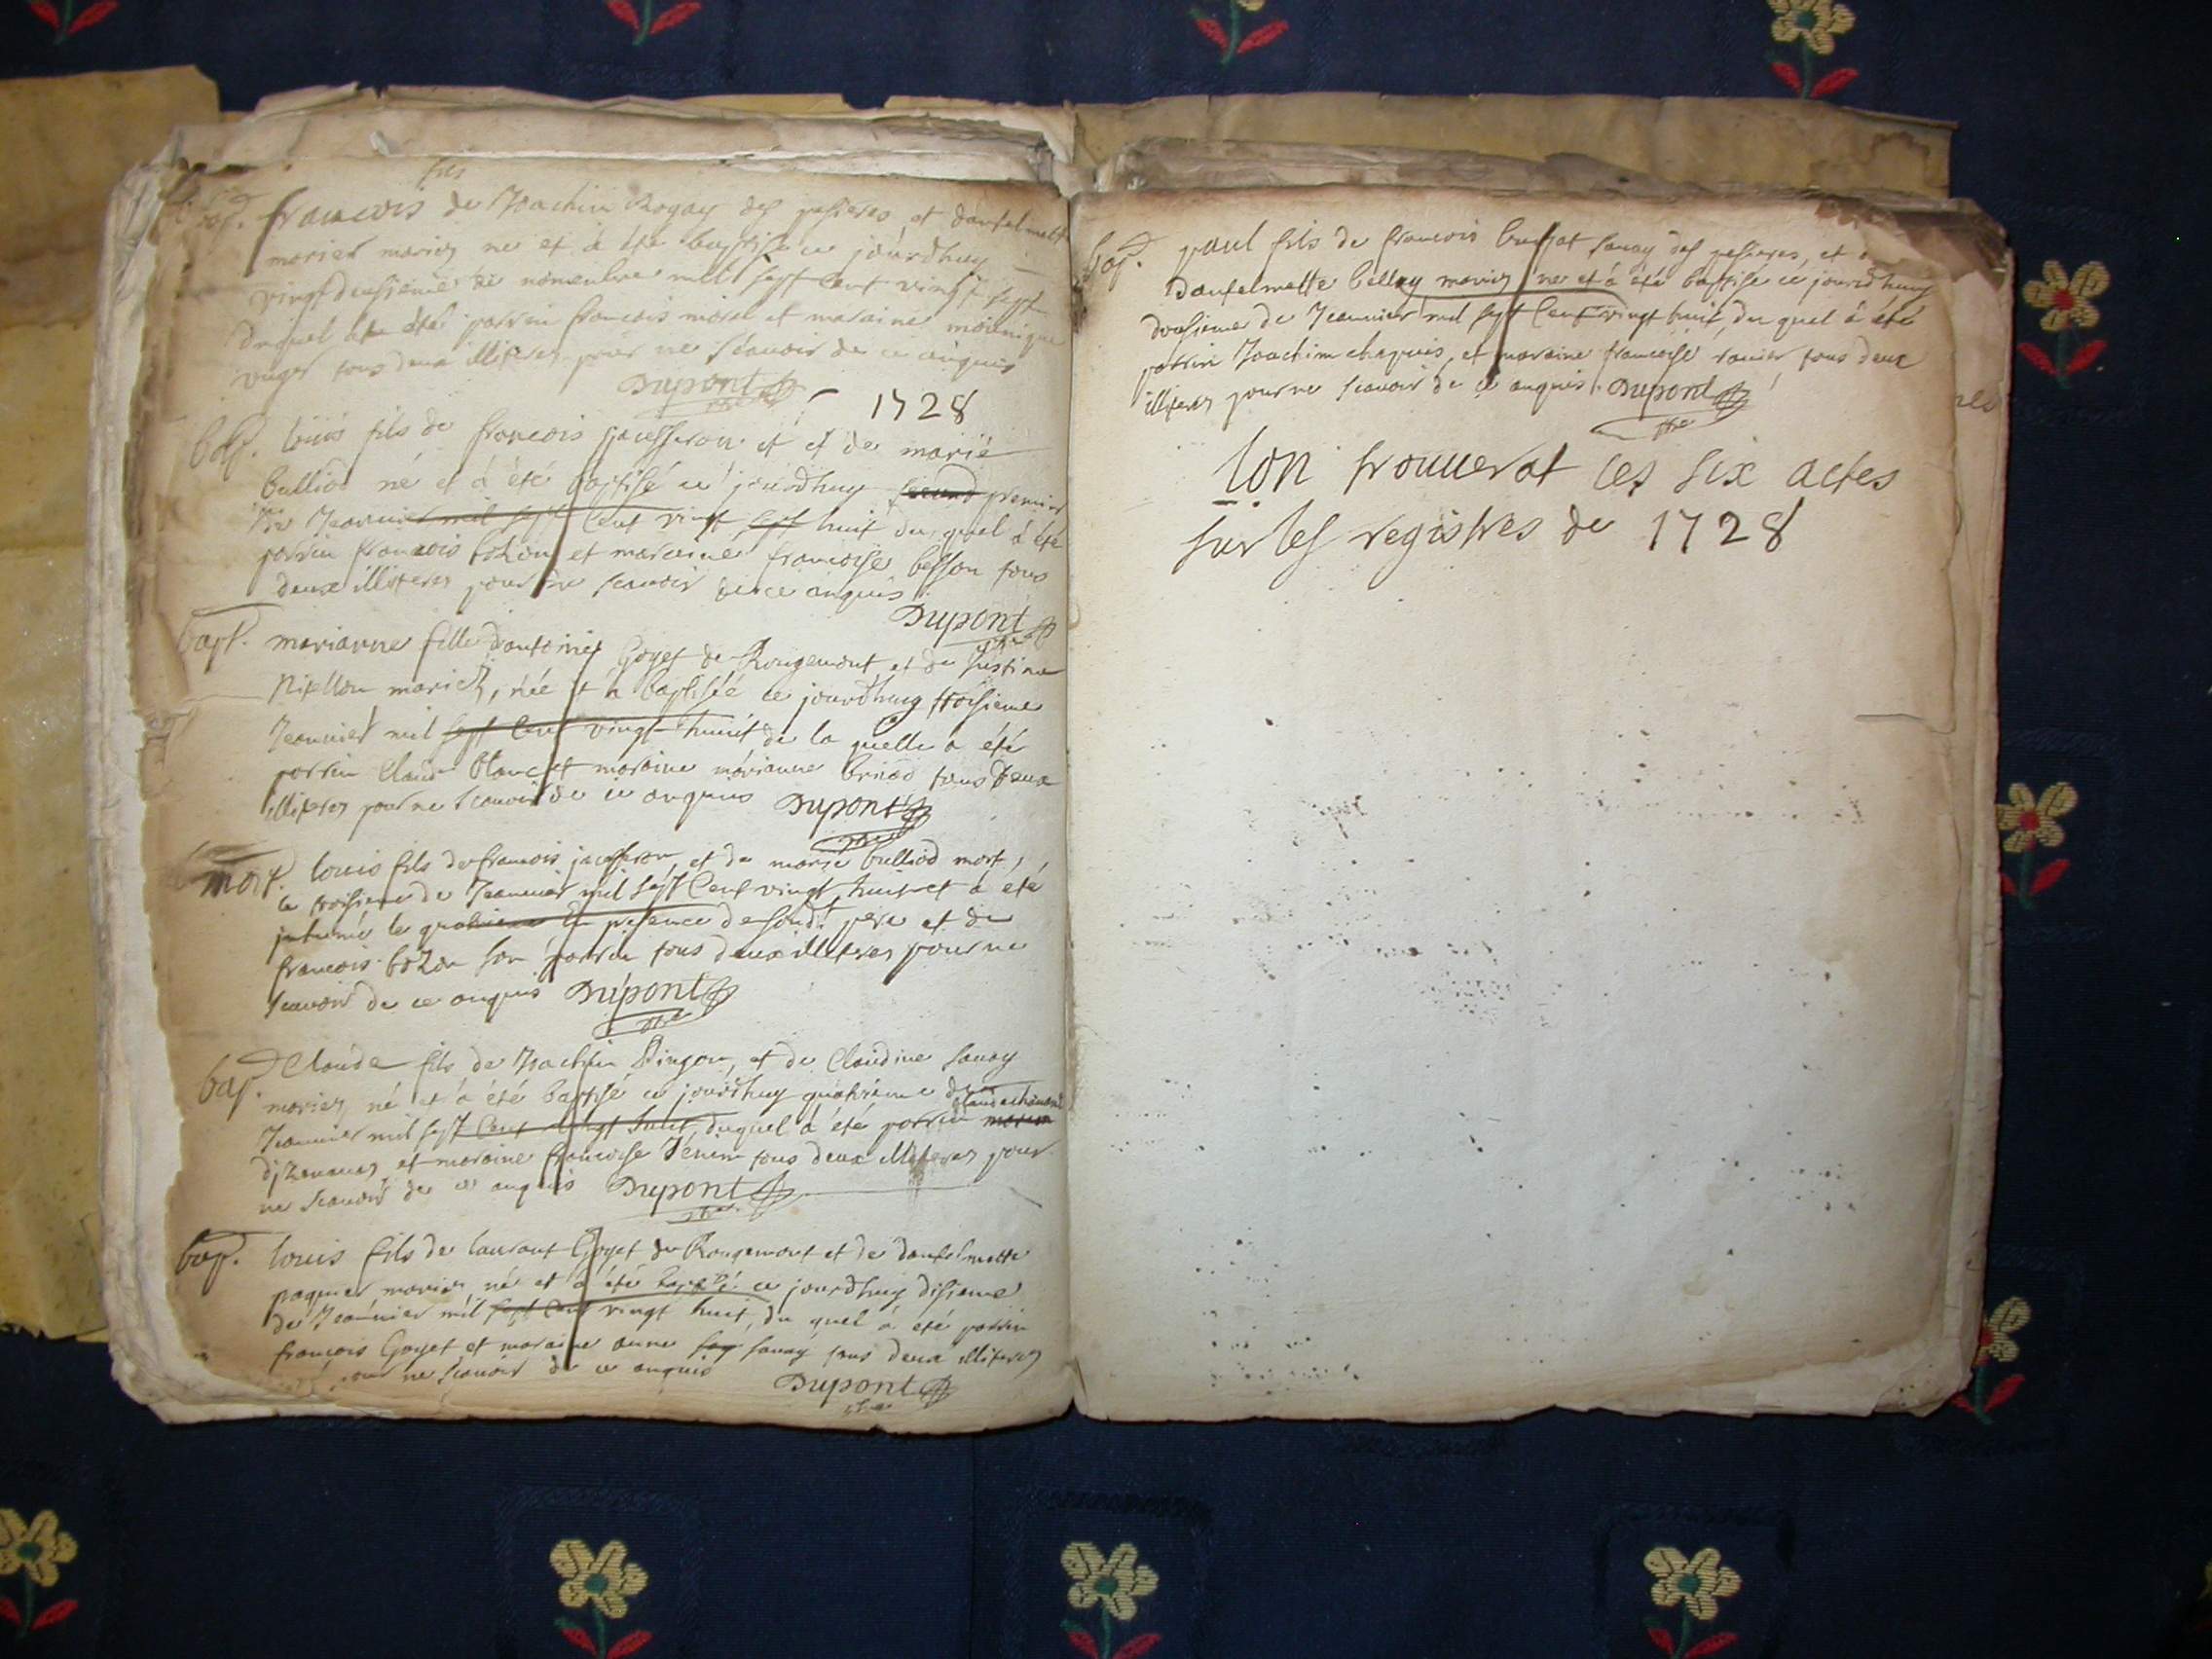 fils
bap. francois de Joachin Rogay des pesieres, et dantelmette
morier mariez ne et à été baptise ce jourdhuy
vingt deusieme de nouembre mil sept cent vingt sept
duquel a été parrin francois morel et maraine
tous deux illiteres pour ne scauoir de ce anquis
Dupont ptre
1728
bap. louis fils de francois jausseron et et de marie
bulliod né et à été baptisé ce jourdhuy second premier
de Jeanuier mil sept Cent vingt sept huit du quel à été
parrin francois bozon et maraine francoise besson tous
deux illiteres pour ne scauoir de ce anquis
Dupont ptre
bapt. marianne fille dantoine Goyet de Rougemont et de Justine
niellon mariez, née et à baptisée ce jourdhuy troisieme
Jeanuier mil sept Cent vingt huit de la quelle a été
parrin Claude blanc et maraine marianne briod tous deux
illiteres pour ne scauoir de ce anquis Dupont
ptre
mort. louis fils de francois jausseron, et de marie bulliod mort,
le troisieme de Jeanuier mil sept Cent vingt huit et à été
inhumé le quatrieme En presence de sondt. pere et de
francois bozon son parrin tous deux illiteres pour ne
scauoir de ce anquis Dupont
ptre
bap. Claude fils de Joachin Pingon, et de Claudine sauay
mariez, né et à été baptisé ce jourdhuy quatrieme de
Jeanuier mil sept Cent vingt huit, duquel à été parrin
et maraine francoise tous deux illiteres pour
ne scauoir de ce anquis Dupont
ptre
bap. louis fils de laurant Goyet de Rougemont et de dantelmette
paquier mariez, né et à été baptisé ce jourdhuy disieme
de Jeanuier mil sept Cent vingt huit, du quel à été parrin
francois Goyet et maraine anne sauay tous deux illiteres
pour ne scauoir de ce anquis
Dupont
ptre
bap. paul fils de francois buffat sauay des pesieres, et
dantelmette belley mariez né et à été baptisé ce jourdhuy
dousieme de Jeanuier mil sept Cent vingt huit, du quel à été
parrin Joachim chapuis, et maraine francoise tous deux
illiteres pour ne scauoir de ce anquis. Dupont
ptre
lon trouuerat ces six actes
sur les registres de 1728